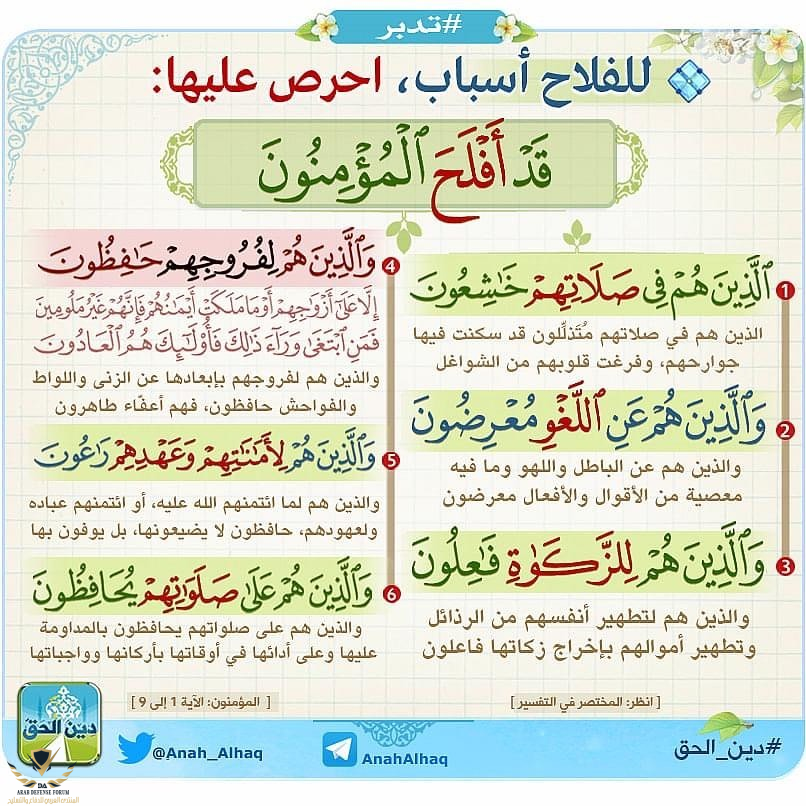 #تدبر
للفلاح أسباب، احرص عليها:
قَدْ أَفْلَحَ ٱلْمُؤْمِنُونَ
1 ٱلَّذِينَ هُمْ فِي صَلَاتِهِمْ خَٰشِعُونَ
الذين هم في صلاتهم مُتَذلِّلون قد سكنت فيها
جوارحهم، وفرغت قلوبهم من الشواغل
2 وَٱلَّذِينَ هُمْ عَنِ ٱللَّغْوِ مُعْرِضُونَ
والذين هم عن الباطل واللهو وما فيه
معصية من الأقوال والأفعال معرضون
3 وَٱلَّذِينَ هُمْ لِلزَّكَوٰةِ فَٰعِلُونَ
والذين هم لتطهير أنفسهم من الرذائل
وتطهير أموالهم بإخراج زكاتها فاعلون
[ انظر: المختصر في التفسير ]
4 وَٱلَّذِينَ هُمْ لِفُرُوجِهِمْ حَٰفِظُونَ
إِلَّا عَلَىٰٓ أَزْوَٰجِهِمْ أَوْ مَا مَلَكَتْ أَيْمَٰنُهُمْ فَإِنَّهُمْ غَيْرُ مَلُومِينَ
فَمَنِ ٱبْتَغَىٰ وَرَآءَ ذَٰلِكَ فَأُو۟لَٰٓئِكَ هُمُ ٱلْعَادُونَ
والذين هم لفروجهم بإبعادها عن الزنى واللواط
والفواحش حافظون، فهم أعفّاء طاهرون
5 وَٱلَّذِينَ هُمْ لِأَمَٰنَٰتِهِمْ وَعَهْدِهِمْ رَٰعُونَ
والذين هم لما ائتمنهم الله عليه، أو ائتمنهم عباده
ولعهودهم، حافظون لا يضيعونها، بل يوفون بها
6 وَٱلَّذِينَ هُمْ عَلَىٰ صَلَوَٰتِهِمْ يُحَافِظُونَ
والذين هم على صلواتهم يحافظون بالمداومة
عليها وعلى أدائها في أوقاتها بأركانها وواجباتها
[ المؤمنون: الآية 1 إلى 9 ]
#دين_الحق
AnahAlhaq
@Anah_Alhaq
دين الحق
ARAB DEFENSE FORUM
المنتدى العربي للدفاع والتسليح